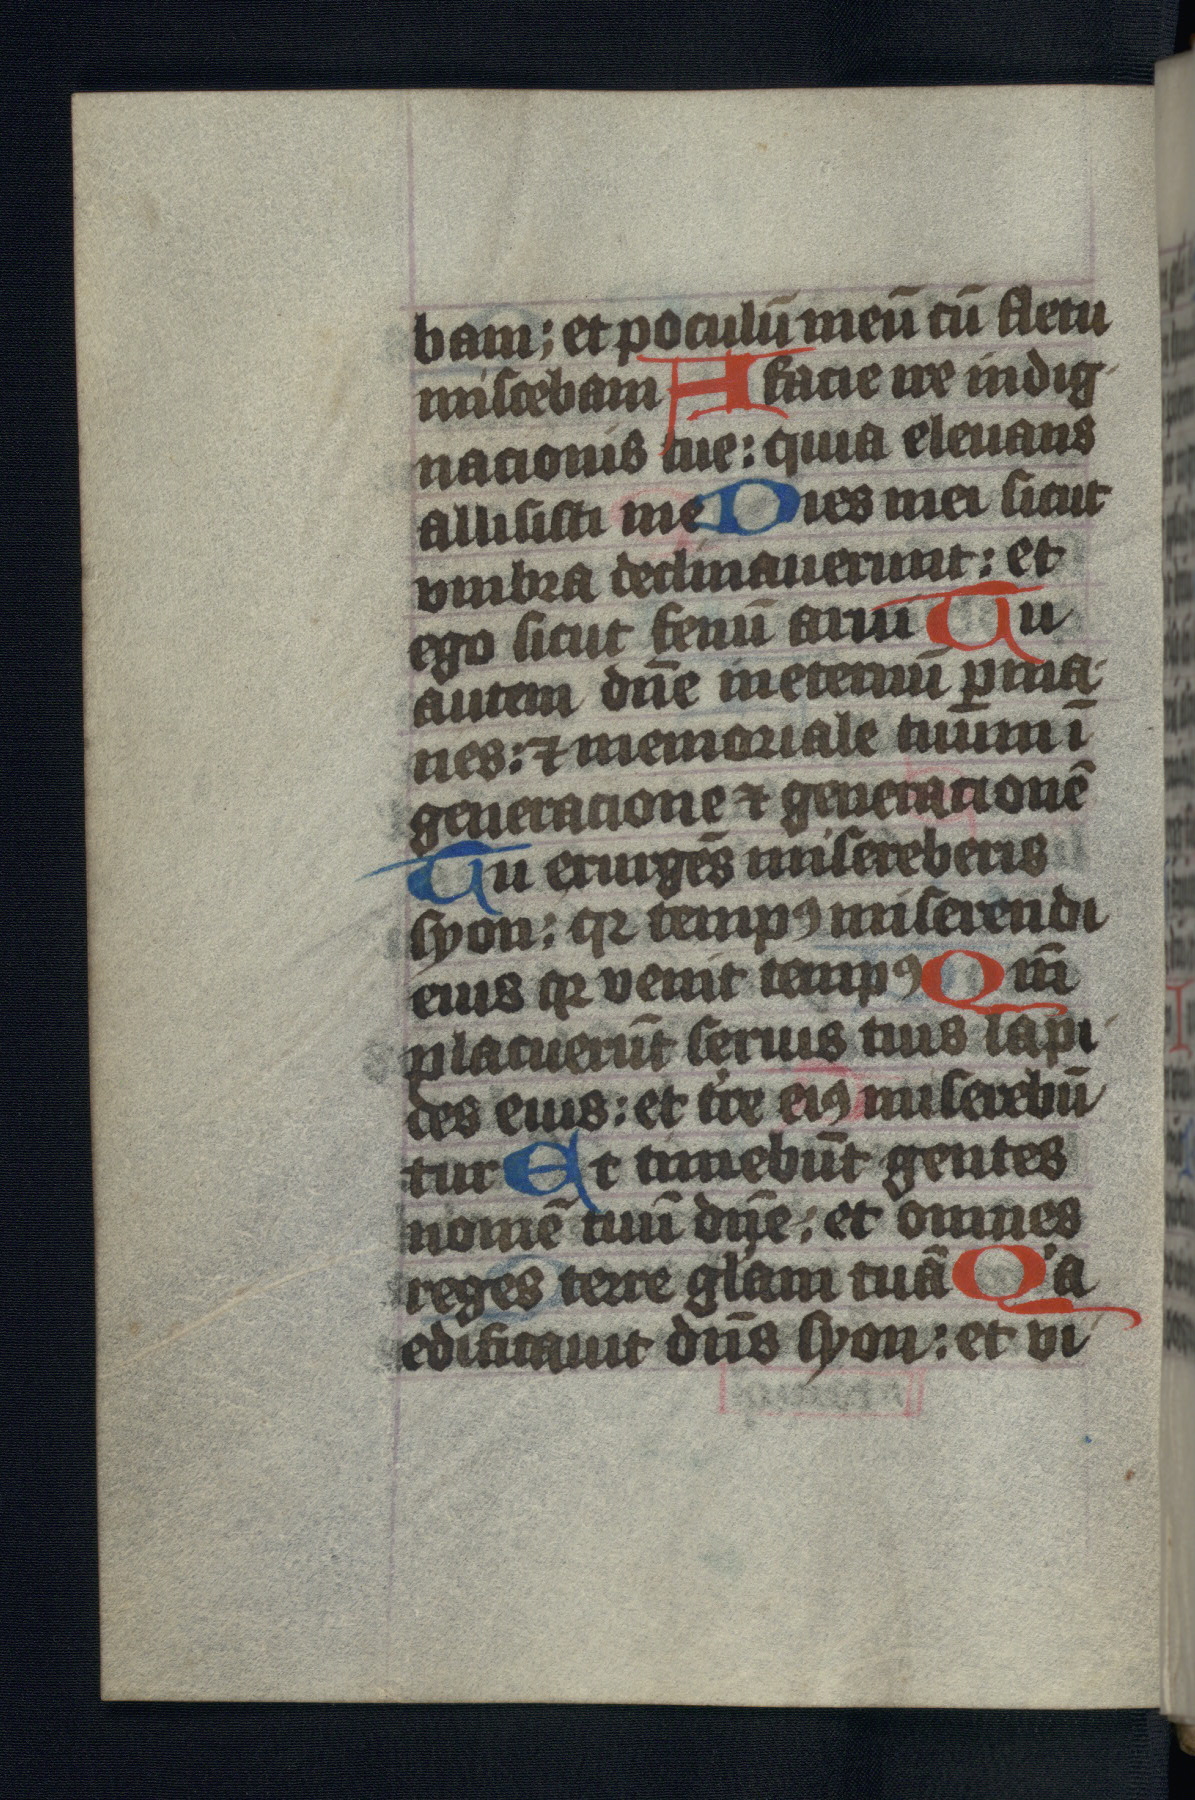 bam; et poculū meū cū fletu
miscebam A facie ire indig
nacionis tue: quia eleuans
allisisti me Dies mei sicut
vmbra declinauerunt: et
ego sicut fenū arui Tu
autem dn̄e ineternū ꝑma
nes: ⁊ memoriale tuūm ī
generacione ⁊ generacionē
Tu exurgēs misereberis
syon: qꝛ tempꝰ miserendi
eius qꝛ venit tempꝰ Qm̄
placuerūt seruis tuis lapi
des eius: et tr̄e eiꝰ miserebū
tur Et timebūt gentes
nomē tuū dn̄e: et omnes
reges terre gl̄am tuā Qꝰa
edificauit dn̄s syon: et vi